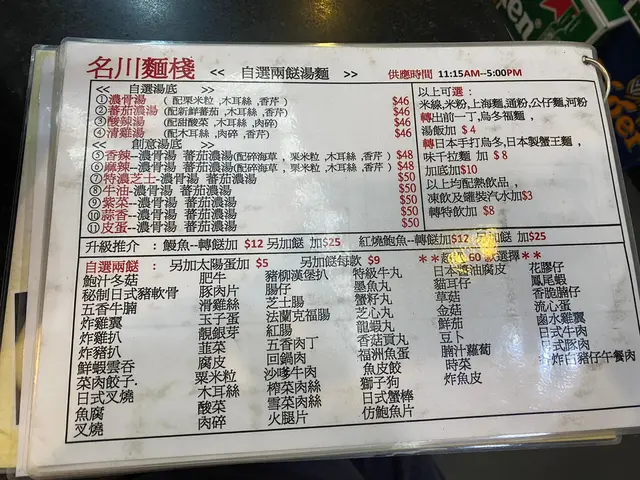 名川麵棧 << 自選兩餸湯麵 >> 供應時間 11:15AM--5:00PM
<< 自選湯底 >>
①濃骨湯 ( 配栗米粒 ,木耳絲 ,香芹 ) $46
②蕃茄濃湯 ( 配新鮮蕃茄 ,木耳絲 ,香芹 ) $46
③酸辣湯 ( 配甜酸菜 ,木耳絲 ,肉碎 ) $46
④清雞湯 ( 木耳絲 ,肉碎 ,香芹 ) $46
<< 創意湯底 >>
⑤香辣--濃骨湯 蕃茄濃湯(配碎海草 , 栗米粒 ,木耳絲 ,香芹 ) $48
⑥麻辣--濃骨湯 蕃茄濃湯(配碎海草 , 栗米粒 ,木耳絲 ,香芹 ) $48
⑦特濃芝士--濃骨湯 蕃茄濃湯 $50
⑧牛油--濃骨湯 蕃茄濃湯 $50
⑨紫菜--濃骨湯 蕃茄濃湯 $50
⑩蒜香--濃骨湯 蕃茄濃湯 $50
⑪皮蛋--濃骨湯 蕃茄濃湯 $50
以上可選 :
米線,米粉,上海麵,通粉,公仔麵,河粉
轉出前一丁,烏冬福麵 ,
湯飯加 $ 4
轉日本手打烏冬,日本製蟹王麵 ,
味千拉麵 加 $ 8
加底加$10
以上均配熱飲品 ,
凍飲及罐裝汽水加$3
轉特飲加 $8
升級推介 : 鰻魚--轉餸加 $12 另加餸 加$25 紅燒鮑魚--轉餸加$12 另加餸 加$25
自選兩餸 : 另加太陽蛋加 $5 另加餸每款 $9 **超過 60 款選擇**
鮑汁冬菇
秘制日式豬軟骨
五香牛腩
炸雞翼
炸雞扒
炸豬扒
鮮蝦雲吞
菜肉餃子
日式叉燒
魚腐
叉燒
肥牛
豚肉片
滑雞絲
玉子蛋
靚蜆芽
韮菜
腐皮
栗米粒
木耳絲
酸菜
肉碎
豬柳漢堡扒
腸仔
芝士腸
法蘭克福腸
紅腸
五香肉丁
回鍋肉
沙嗲牛肉
榨菜肉絲
雪菜肉絲
火腿片
特級牛丸
墨魚丸
蟹籽丸
芝心丸
龍蝦丸
香菇貢丸
福洲魚蛋
魚皮餃
獅子狗
日式蟹棒
仿鮑魚片
日本醬油腐皮
貓耳仔
草菇
金菇
鮮茄
豆卜
腩汁蘿蔔
時菜
炸魚皮
花膠仔
鳳尾蝦
香脆腩仔
流心蛋
鹵水雞翼
日式牛肉
日式豚肉
香炸白豬仔午餐肉